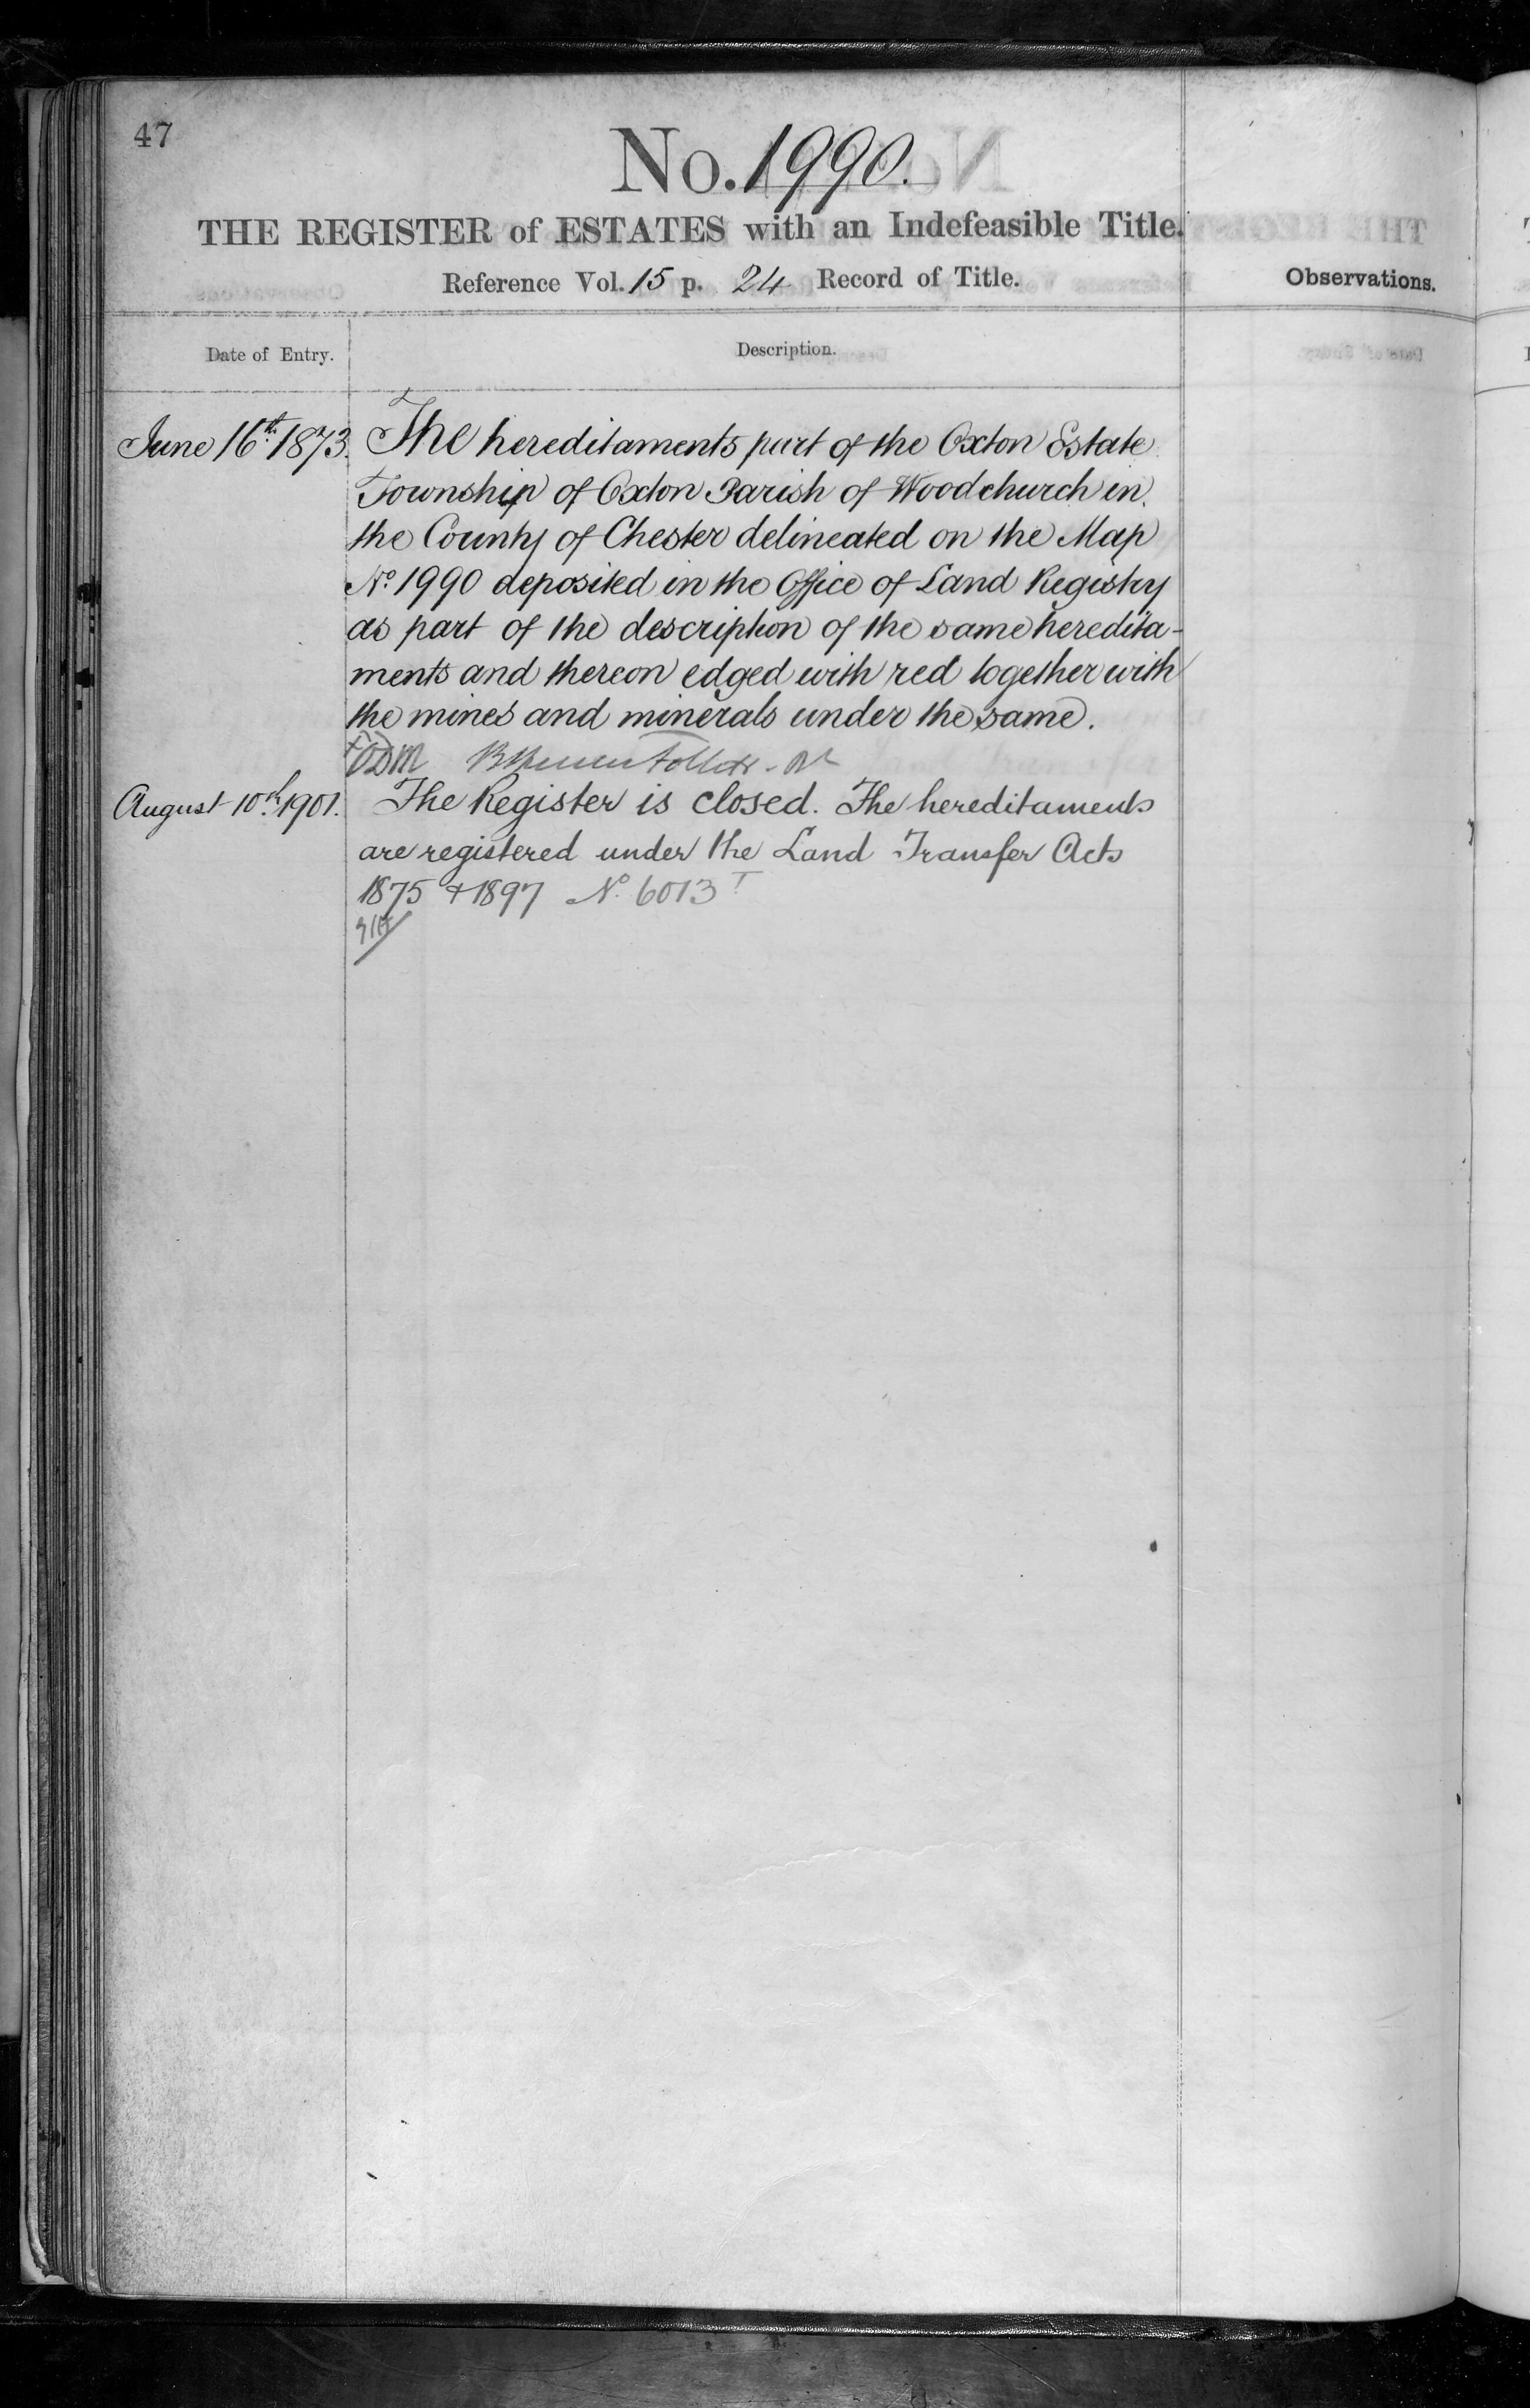 47
No. 1990.
THE REGISTER of ESTATES with an Indefeasible Title.
Reference Vol. 15 p. 24 Record of Title.
Observations.
Date of Entry.
Description.
June 16th. 1873. The hereditaments part of the Oxton Estate
Township of Oxton Parish of Woodchurch in
the County of Chester delineated on the Map
No. 1990 deposited in the Office of Land Registry
as part of the description of the same heredita-
ments and thereon edged with red together with
the mines and minerals under the same.
August 10th. 1901. The Register is closed. The hereditaments
are registered under the Land Transfer Acts
1875 & 1897 No. 6013 T